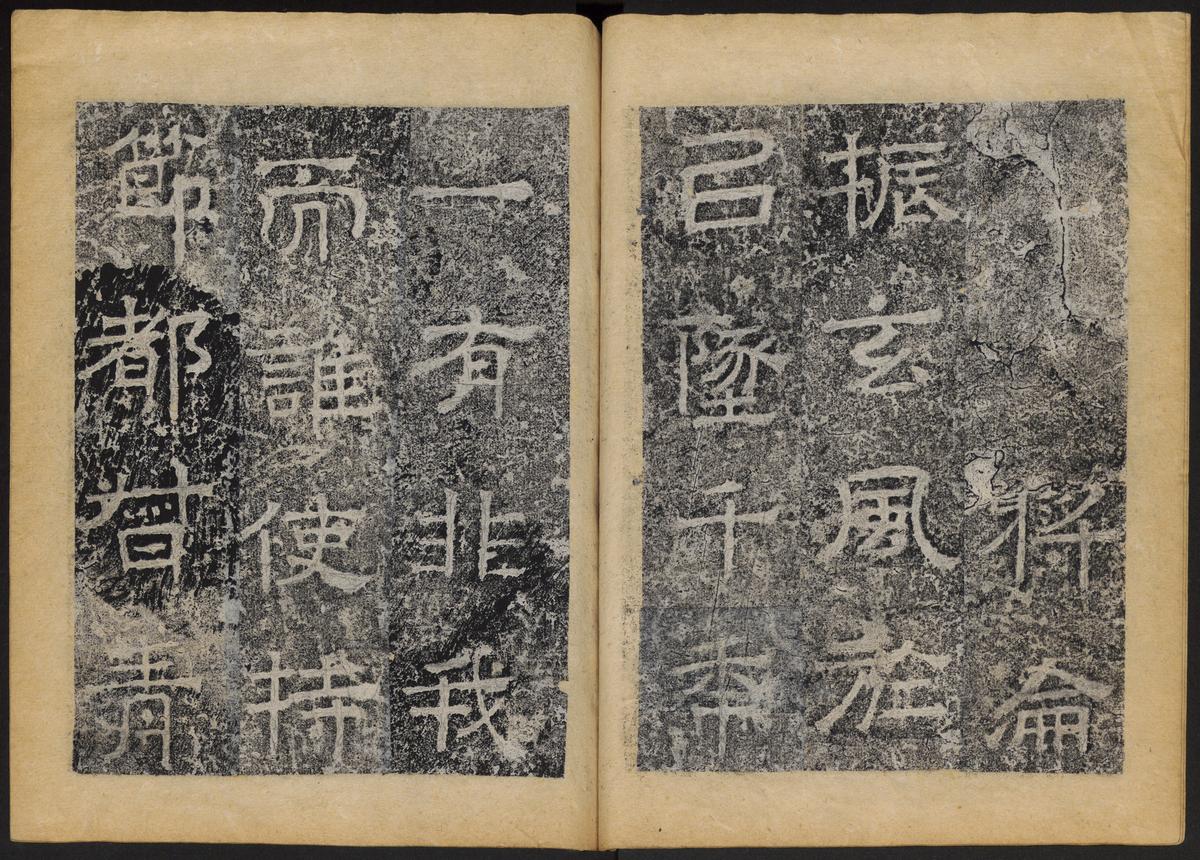 侖
振玄風於
已墜千秊
一有非我
而誰使持
節都督青